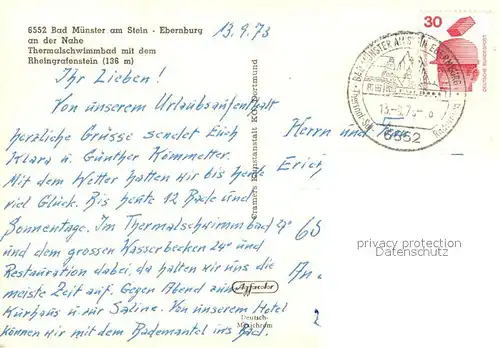 6552 Bad Münster am Stein - Ebernburg
an der Nahe
Thermalschwimmbad mit dem
Rheingrafenstein (136 m)
13.9.73
30
DEUTSCHE BUNDESPOST
BAD MÜNSTER AM STEIN EBERNBURG
13.-9.73.
6552
Ihr Lieben!
Von unserem Urlaubsaufenthalt
herzliche Grüsse sendet Euch
Klara u. Günther Kömmetter.
Mit dem Wetter hatten wir bis heute
viel Glück. Bis heute 12 Bade und
Sonnentage. Im Thermalschwimmbad 29°
und dem grossen Wasserbecken 24° und
Restauration dabei, da halten wir uns die
meiste Zeit auf. Gegen Abend am
Kürhaus u. zur Saline. Von unserem Hotel
können wir mit dem Bademantel ins Bad.
Cramers Kunstanstalt KG, Dortmund
Agfacolor
Deutsch-
Mischrom
Herrn und
Erich
65
An
privacy protection